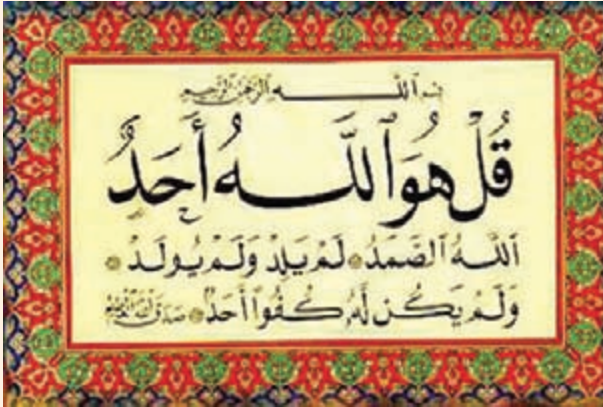 بسم الله الرحمن الرحيم
قُلْ هُوَ ٱللَّهُ أَحَدٌ
ٱللَّهُ ٱلصَّمَدُ لَمْ يَلِدْ وَلَمْ يُولَدْ
وَلَمْ يَكُن لَّهُۥ كُفُوًا أَحَدٌۢ صدق الله العظيم